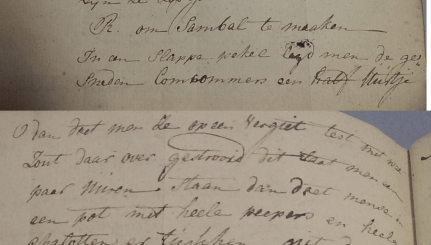 R. om Sambal te maaken
In een Slappe pekel legd men de ge-
Sneden Comcommers een half Uurtje
dan doet men ze op een Vergiet test met wat
Zout daar over gestrooid dit laat men een
paar Uuren Staan dan doet mense in
een pot met heele peepers en heele